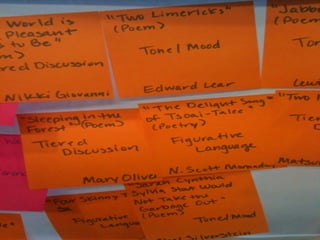 World is
Pleasant
to Be"
Tiered Discussion
Nikki Giovanni
"Two Limericks"
(Poem)
Tone/Mood
Edward Lear
"Jabbo
(Poem
Ton
Lewi
"Sleeping in the
Forest" (Poem)
Tiered
Discussion
Mary Oliver
"The Delight Song
of Tsoai-Talee"
(Poetry)
Figurative
Language
N. Scott Momaday
"Two H
Tier
D
Matsu
"Four Skinny T
Figurative
Langu
"Sarah Cynthia
Sylvia Stout Would
Not Take the
Garbage Out"
(Poem)
Tone/Mood
Silverstein